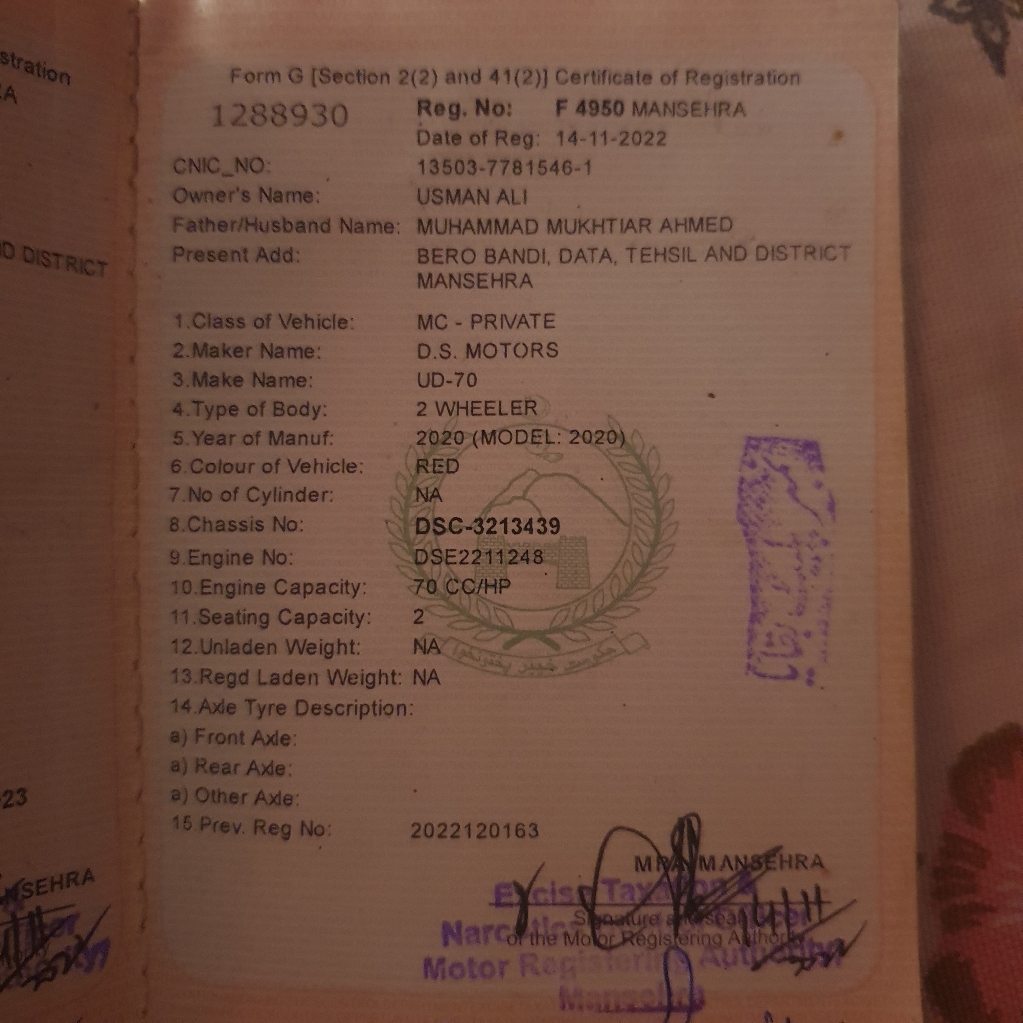 stration
A
D DISTRICT
23
NSEHRA
Form G [Section 2(2) and 41(2)] Certificate of Registration
1288930
Reg. No: F 4950 MANSEHRA
Date of Reg: 14-11-2022
CNIC_NO: 13503-7781546-1
Owner's Name: USMAN ALI
Father/Husband Name: MUHAMMAD MUKHTIAR AHMED
Present Add: BERO BANDI, DATA, TEHSIL AND DISTRICT
MANSEHRA
1.Class of Vehicle: MC - PRIVATE
2.Maker Name: D.S. MOTORS
3.Make Name: UD-70
4.Type of Body: 2 WHEELER
5.Year of Manuf: 2020 (MODEL: 2020)
6.Colour of Vehicle: RED
7.No of Cylinder: NA
8.Chassis No: DSC-3213439
9.Engine No: DSE2211248
10.Engine Capacity: 70 CC/HP
11.Seating Capacity: 2
12.Unladen Weight: NA
حکومت خیبر پختونخوا
13.Regd Laden Weight: NA
14.Axle Tyre Description:
a) Front Axle:
a) Rear Axle:
a) Other Axle:
15 Prev. Reg No: 2022120163
MRA MANSEHRA
Excise Taxation &
Signature and seal
Narcotics Officer
of the Motor Registering Authority
Motor Registering Authority
Mansehra